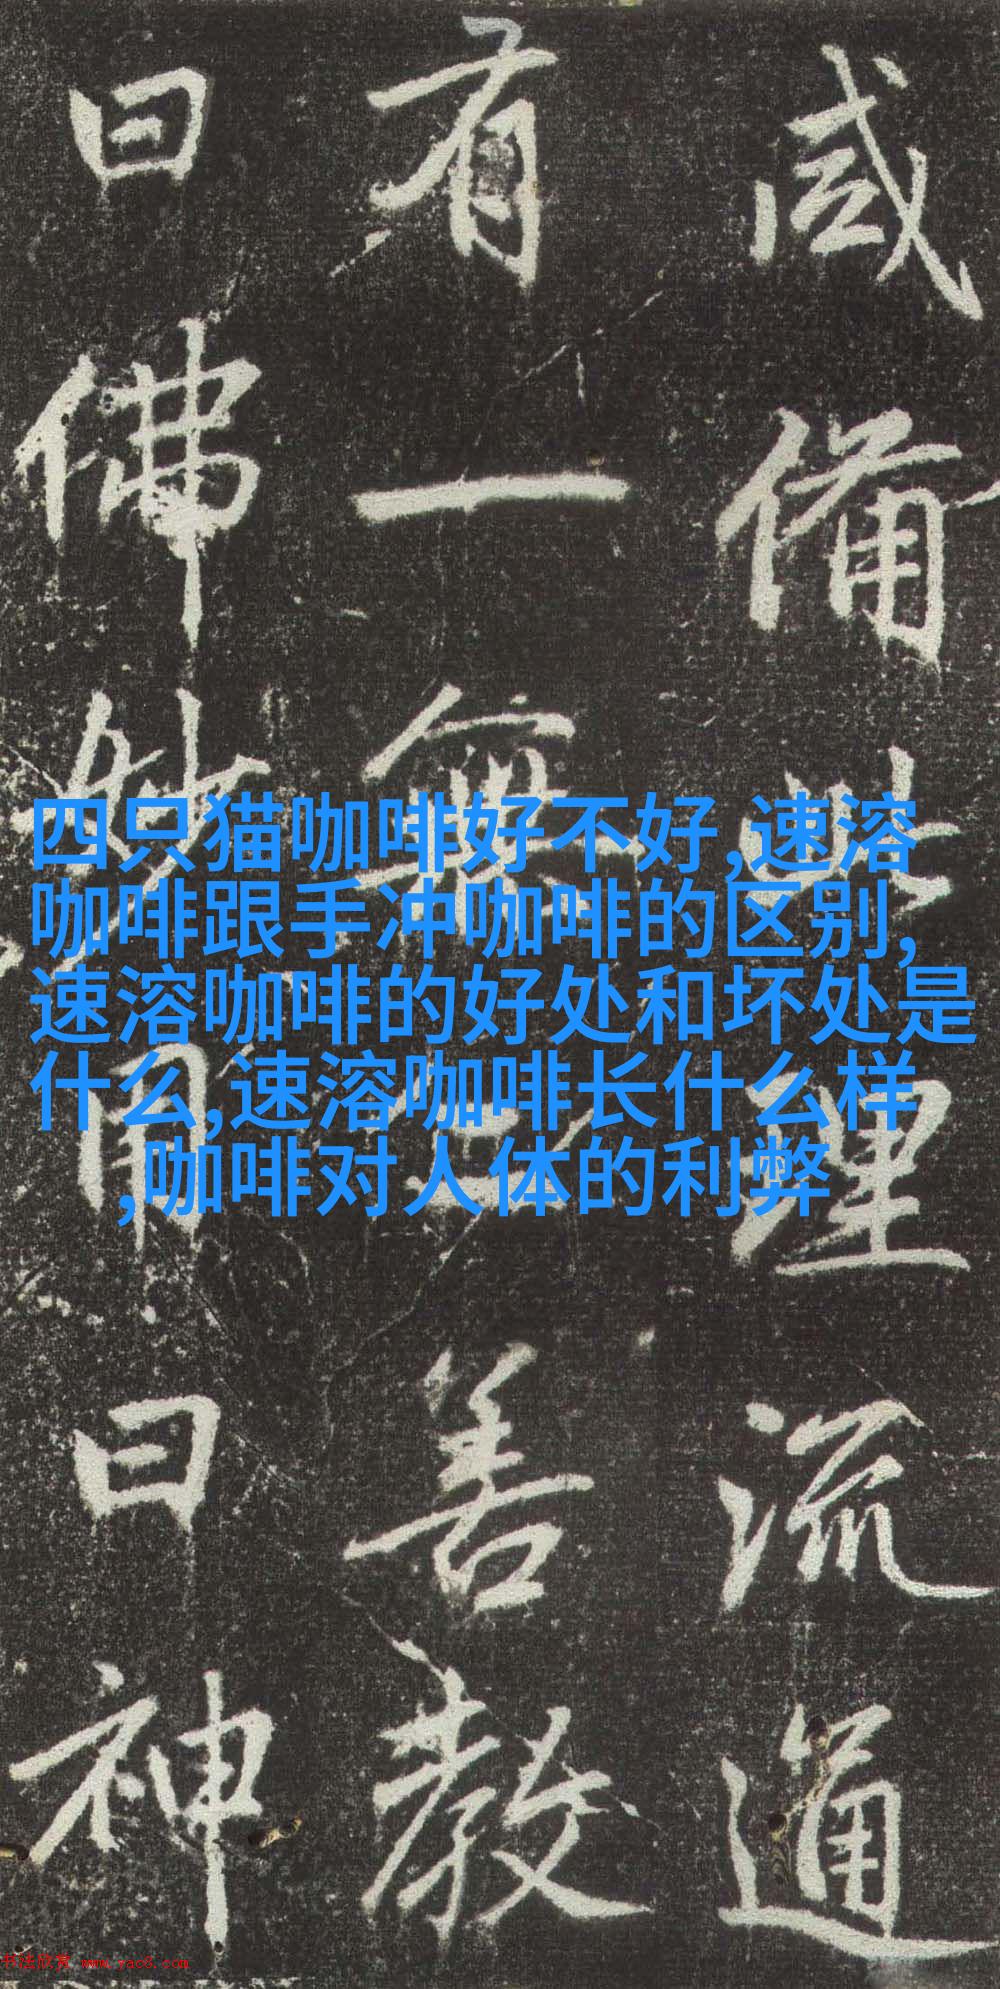 咸備理流通
有一無善教
曰佛用曰神
四只猫咖啡好不好,速溶
咖啡跟手冲咖啡的区别,
速溶咖啡的好处和坏处是
什么,速溶咖啡长什么样
,咖啡对人体的利弊
书法欣赏 www.yac8.com